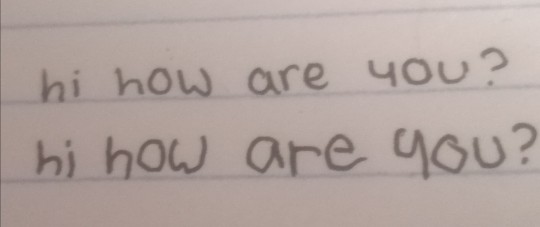 hi how are you?
hi how are you?